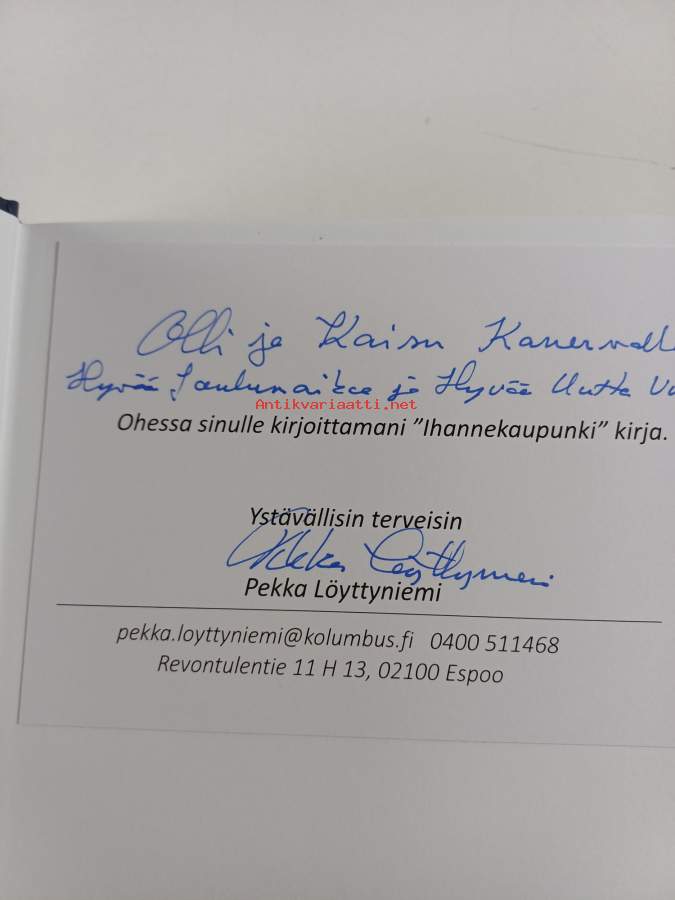 Olli ja Kaisu Kanervalle
Hyvää Joulunaikaa ja Hyvää Uutta Vu
Antikvariaatti.net
Ohessa sinulle kirjoittamani ”Ihannekaupunki” kirja.
Ystävällisin terveisin
Pekka Löyttyniemi
Pekka Löyttyniemi
pekka.loyttyniemi@kolumbus.fi 0400 511468
Revontulentie 11 H 13, 02100 Espoo